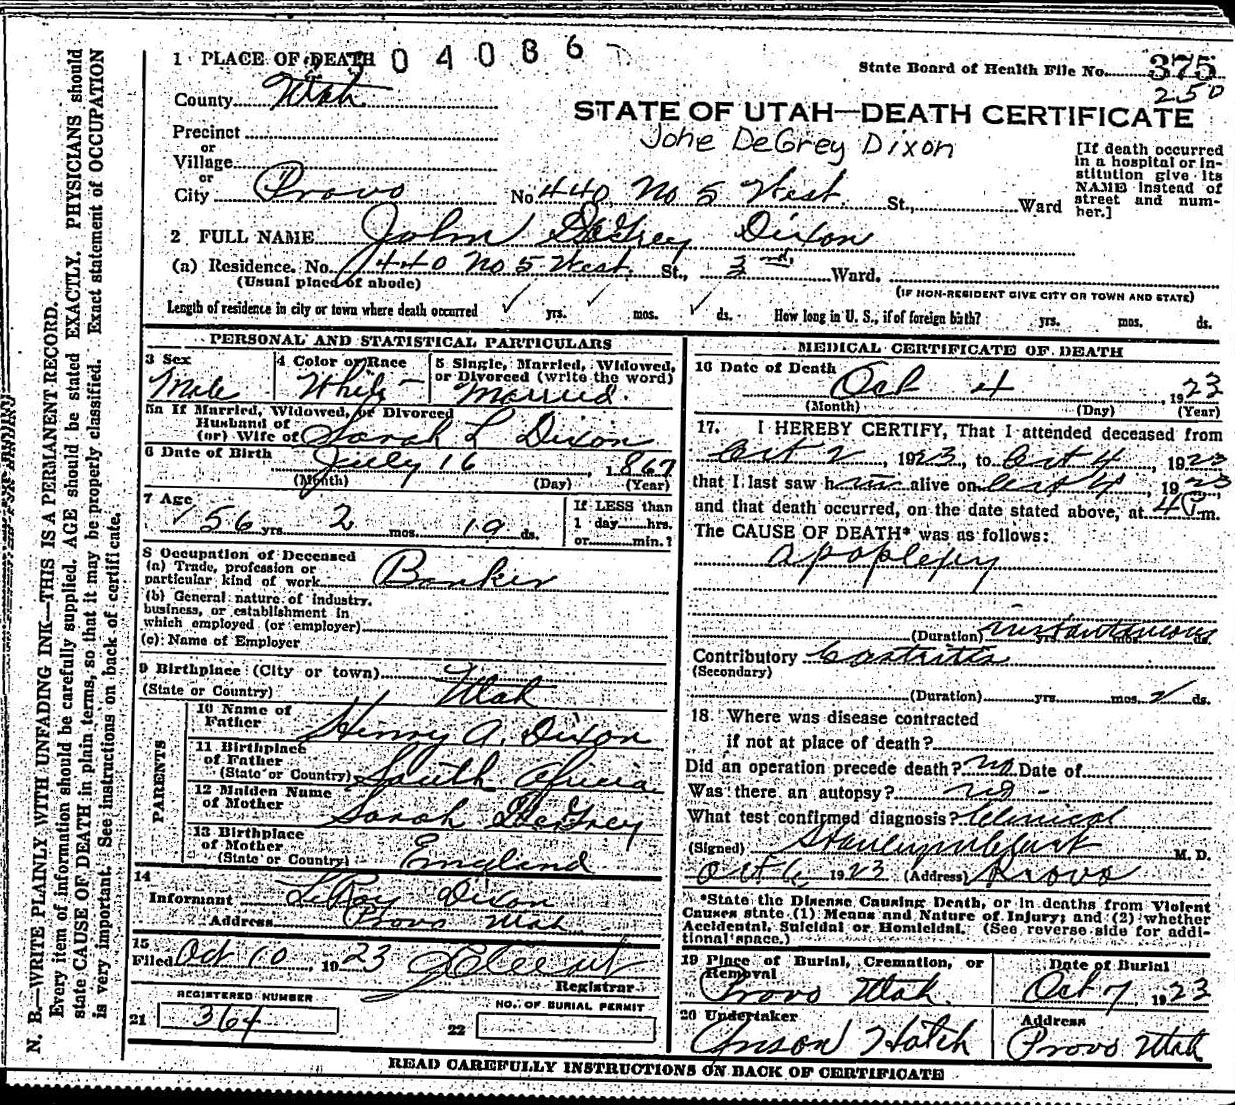 N. B.—WRITE PLAINLY WITH UNFADING INK—THIS IS A PERMANENT RECORD.
Every item of information should be carefully supplied. AGE should be stated EXACTLY. PHYSICIANS should
state CAUSE OF DEATH in plain terms, so that it may be properly classified. Exact statement of OCCUPATION
is very important. See instructions on back of certificate.
04086
1 PLACE OF DEATH
State Board of Health File No. 375
250
County Utah
STATE OF UTAH—DEATH CERTIFICATE
John DeGrey Dixon
Precinct
or
Village
or
City Provo No 440 No 5 West St., Ward
[If death occurred
in a hospital or in-
stitution give its
NAME instead of
street and num-
ber.]
2 FULL NAME John DeGrey Dixon
(a) Residence. No. 440 No 5 West St., 3rd Ward.
(Usual place of abode)
(IF NON-RESIDENT GIVE CITY OR TOWN AND STATE)
Length of residence in city or town where death occurred yrs. mos. ds. How long in U. S., if of foreign birth? yrs. mos. ds.
PERSONAL AND STATISTICAL PARTICULARS
3 Sex
Male
4 Color or Race
White
5 Single, Married, Widowed,
or Divorced (write the word)
Married.
5a If Married, Widowed, or Divorced
Husband of
(or) Wife of Sarah L Dixon
6 Date of Birth July 16, 1867
(Month) (Day) (Year)
7 Age
56 yrs. 2 mos. 19 ds.
If LESS than
1 day hrs.
or min.?
8 Occupation of Deceased
(a) Trade, profession or
particular kind of work Banker
(b) General nature of industry,
business, or establishment in
which employed (or employer)
(c) Name of Employer
9 Birthplace (City or town)
(State or Country) Utah
PARENTS
10 Name of
Father Henry A. Dixon
11 Birthplace
of Father
(State or Country) South Africa
12 Maiden Name
of Mother Sarah DeGrey
13 Birthplace
of Mother
(State or Country) England
14
Informant LeRoy Dixon
Address Provo Utah
15
Filed Oct 10, 1923
Registrar
REGISTERED NUMBER
21 364
NO. OF BURIAL PERMIT
22
MEDICAL CERTIFICATE OF DEATH
16 Date of Death Oct 4, 1923
(Month) (Day) (Year)
17. I HEREBY CERTIFY, That I attended deceased from
Oct 2, 1923, to Oct 4, 1923
that I last saw him alive on Oct 4, 1923
and that death occurred, on the date stated above, at 4 P m.
The CAUSE OF DEATH* was as follows:
apoplexy
(Duration) instantaneous yrs. mos. ds.
Contributory
(Secondary)
(Duration) yrs. mos. 2 ds.
18 Where was disease contracted
if not at place of death?
Did an operation precede death? no Date of
Was there an autopsy? no
What test confirmed diagnosis? Clinical
(Signed) M. D.
Oct 6, 1923 (Address) Provo
*State the Disease Causing Death, or in deaths from Violent
Causes state (1) Means and Nature of Injury; and (2) whether
Accidental, Suicidal or Homicidal. (See reverse side for addi-
tional space.)
19 Place of Burial, Cremation, or
Removal
Provo Utah.
Date of Burial
Oct 7, 1923
20 Undertaker
Anson Hatch
Address
Provo Utah
READ CAREFULLY INSTRUCTIONS ON BACK OF CERTIFICATE